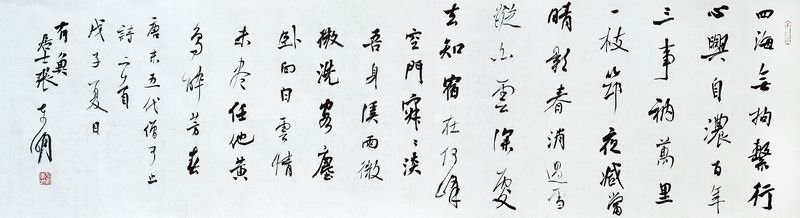 四海無拘繫行
心興自濃百年
三事衲萬里
一枝筇夜減當
晴影春消過雪
蹤白雲深處
去知宿在何峰
空門寂寂淡
吾身溪雨微
微洗客塵
臥向白雲情
未盡任他黃
鳥醉芳春
唐末五代僧可止
詩二首
戊子夏日
居士張明